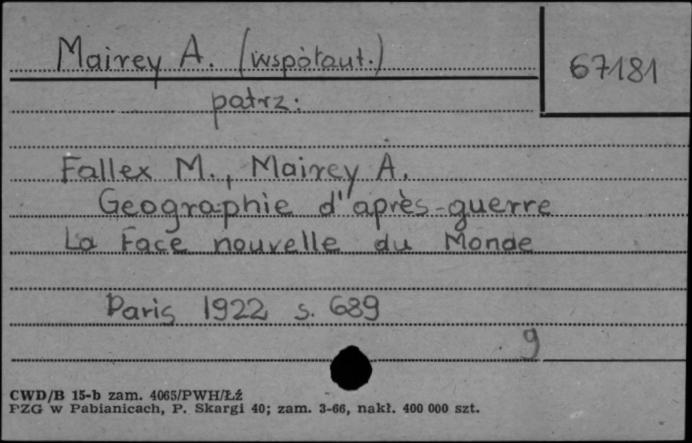 Mairey A. (współaut.)
67181
patrz:
Fallex M., Mairey A.
Geographie d'après-guerre
La Face nouvelle du Monde
Paris 1922 s. 689
9
CWD/B 15-b zam. 4065/PWH/Łź
PZG w Pabianicach, P. Skargi 40; zam. 3-66, nakł. 400 000 szt.